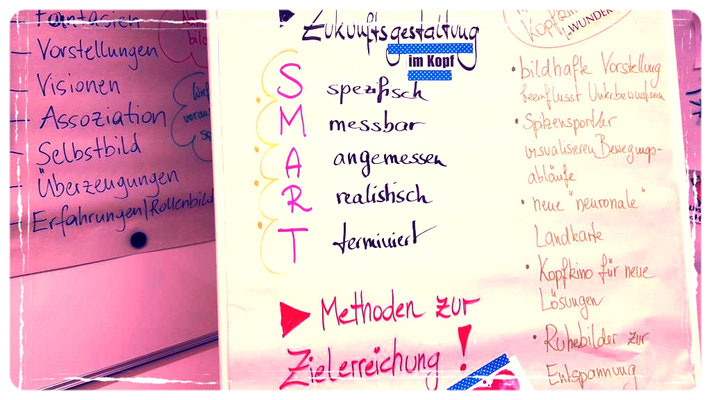 Fantasien
- Vorstellungen
- Visionen
- Assoziation
- Selbstbild
- Überzeugungen
- Erfahrungen/Rollenbild
Zukunftsgestaltung
im Kopf
S spezifisch
M messbar
A angemessen
R realistisch
T terminiert
Methoden zur
Zielerreichung!
Kopf
"WUNDER
• bildhafte Vorstellung
beeinflusst Unterbewusstsein
• Spitzensportler
visualisieren Bewegungs-
abläufe
• neue "neuronale"
Landkarte
• Kopfkino für neue
Lösungen
• Ruhebilder zur
Entspannung